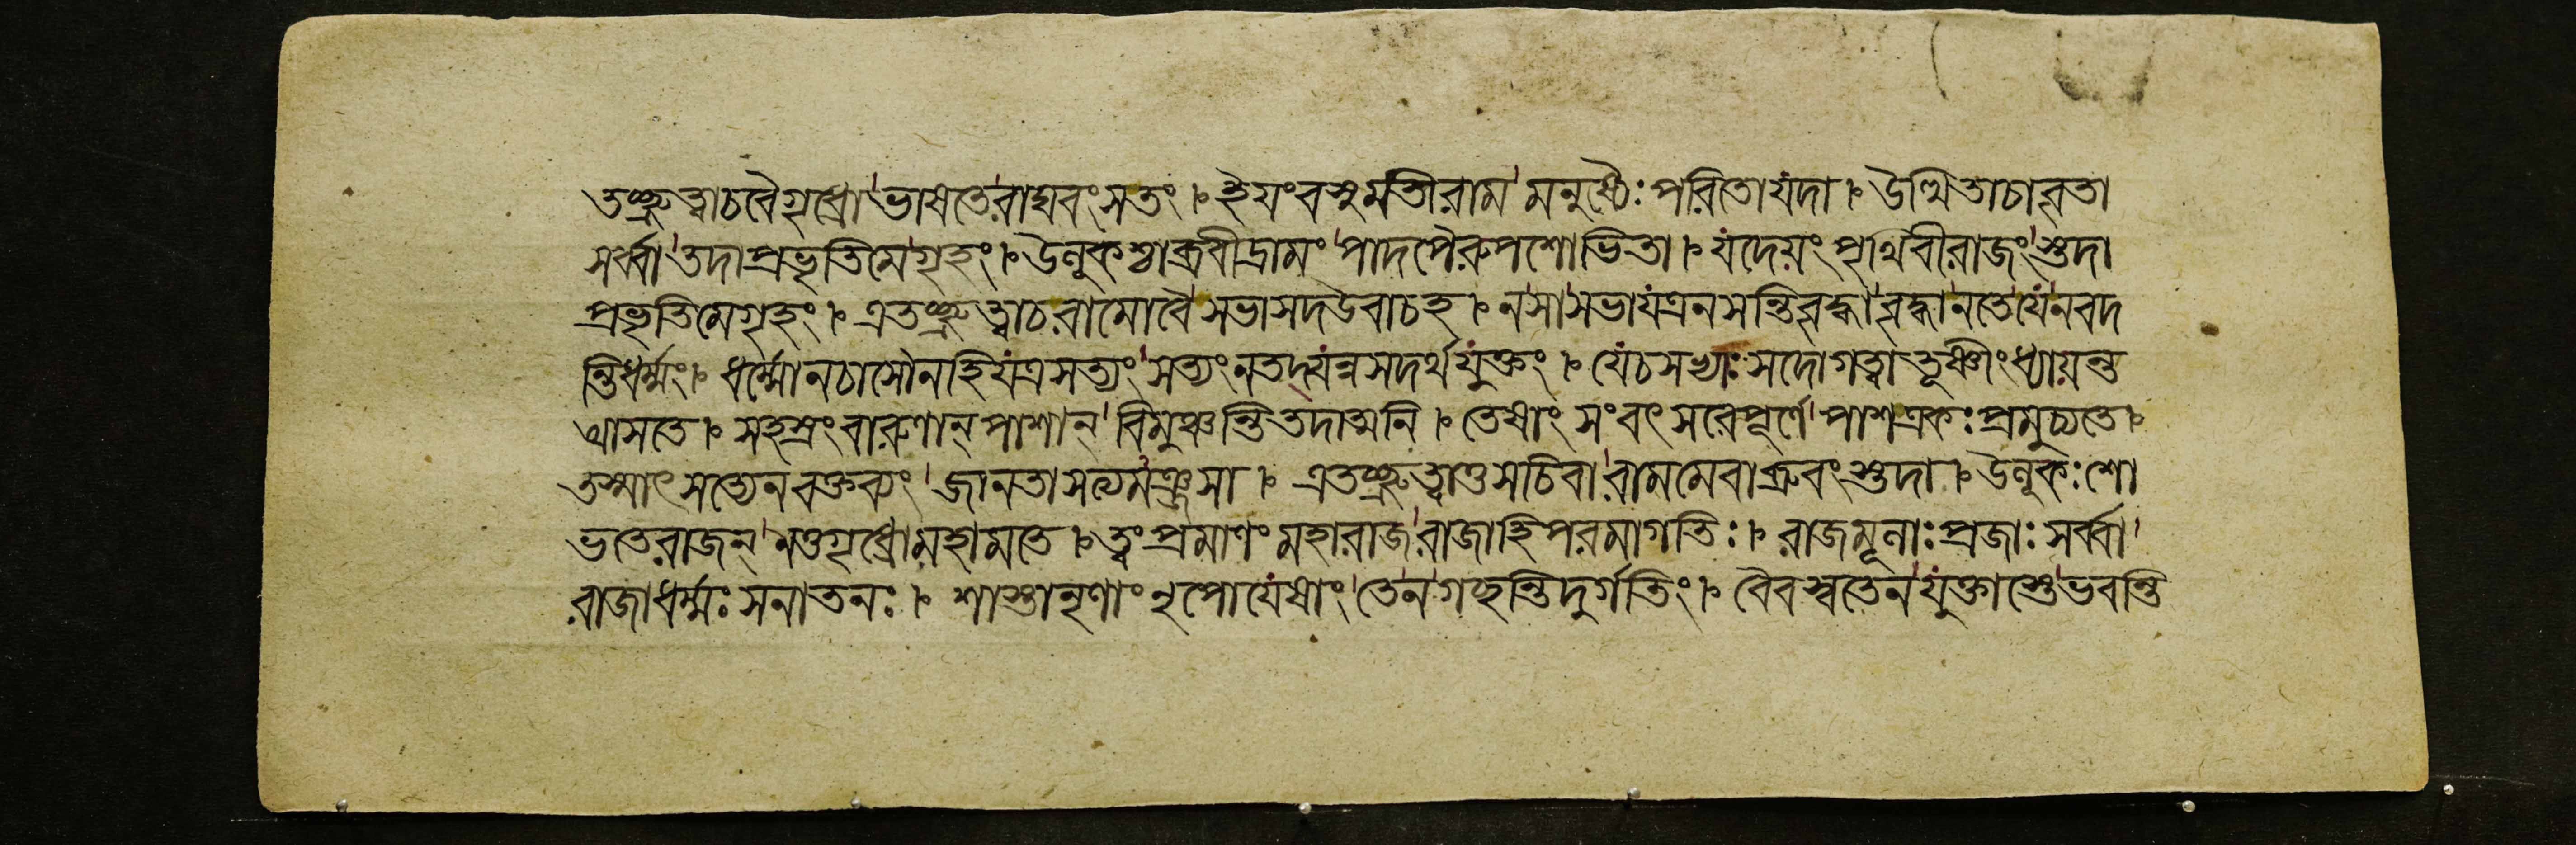 তচ্ছ্রুত্বাচবৈগৃধ্রো'ভাষতেরাঘবংসতং । ইয়ংবসুমতীরাম'মনুষ্যৈঃপরিতোযদা । উত্থিতাচাবৃতা
সর্ব্বা'তদাপ্রভৃতিমেগৃহং । উলুকশ্চাব্রবীদ্রামং'পাদপৈরুপশোভিতা । যদেয়ংপৃথিবীরাজং'স্তদা
প্রভৃতিমেগৃহং । এতচ্ছ্রুত্বাচরামোবৈ'সভাসদউবাচহ । ন'সা'সভাযত্রনসন্তিবৃদ্ধা'বৃদ্ধানতেযেনবদ
ন্তিধর্ম্মং । ধর্ম্মোনচাসৌনহিযত্রসত্যং'সত্যংনতদ্যন্নসদর্থযুক্তং । যেচসভ্যাঃসদোগত্বাতূষ্ণীংধ্যায়ন্ত
আসতে । সহস্রংবারুণান্পাশান্'বিমুঞ্চন্তিতদাত্মনি । তেষাংসংবৎসরেপূর্ণে'পাশএকঃপ্রমুচ্যতে ।
তস্মাৎসত্যেনবক্তব্যং'জানতাসত্যমঞ্জসা । এতচ্ছ্রুত্বাতুসচিবা'রামমেবাব্রুবংস্তদা । উলুকঃশো
ভতেরাজন্'নতুগৃধ্রোমহামতে । ত্বংপ্রমাণংমহারাজ'রাজাহিপরমাগতিঃ । রাজমূলাঃপ্রজাঃসর্ব্বা'
রাজাধর্ম্মঃসনাতনঃ । শাস্তানৃণাংনৃপোযেষাং'তেনগচ্ছন্তিদুর্গতিং । বৈবস্বতেনযুক্তাস্তেভবন্তি